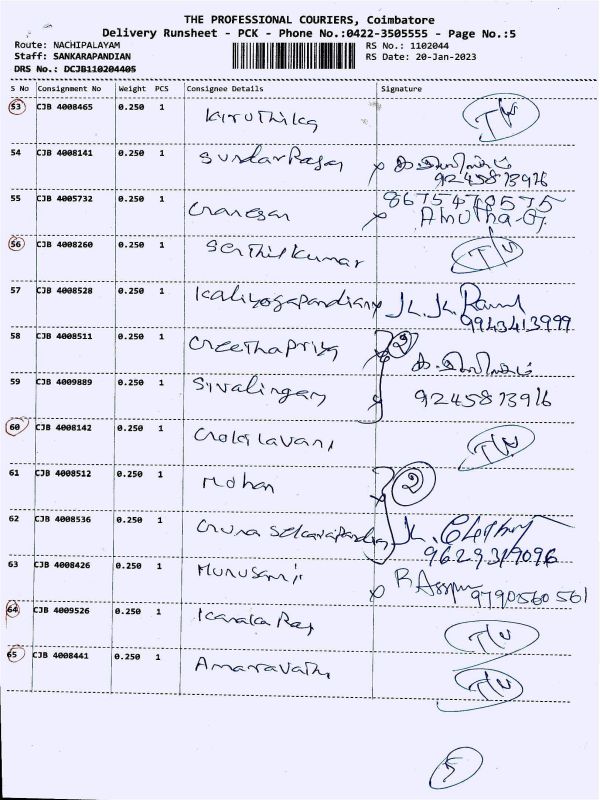 THE PROFESSIONAL COURIERS, Coimbatore
Delivery Runsheet - PCK - Phone No.:0422-3505555 - Page No.:5
Route: NACHIPALAYAM RS No.: 1102044
Staff: SANKARAPANDIAN RS Date: 20-Jan-2023
DRS No.: DCJB110204405
S No Consignment No Weight PCS Consignee Details Signature
53 CJB 4008465 0.250 1 Kiruthika
54 CJB 4008141 0.250 1 SundarRasan
9245873916
55 CJB 4005732 0.250 1 Ganesan 8675478575
Amutha-G
56 CJB 4008260 0.250 1 Senthilkumar
57 CJB 4008528 0.250 1 Kaliyogapandiany
9943413999
58 CJB 4008511 0.250 1 Greethapriya 2
59 CJB 4009889 0.250 1 Sivalingam 9245873916
60 CJB 4008142 0.250 1
61 CJB 4008512 0.250 1 Mohan 2
62 CJB 4008536 0.250 1
9629319096
63 CJB 4008426 0.250 1 Murusami
9790560561
64 CJB 4009526 0.250 1 Kanaka Raj
65 CJB 4008441 0.250 1 Amaravathi
5